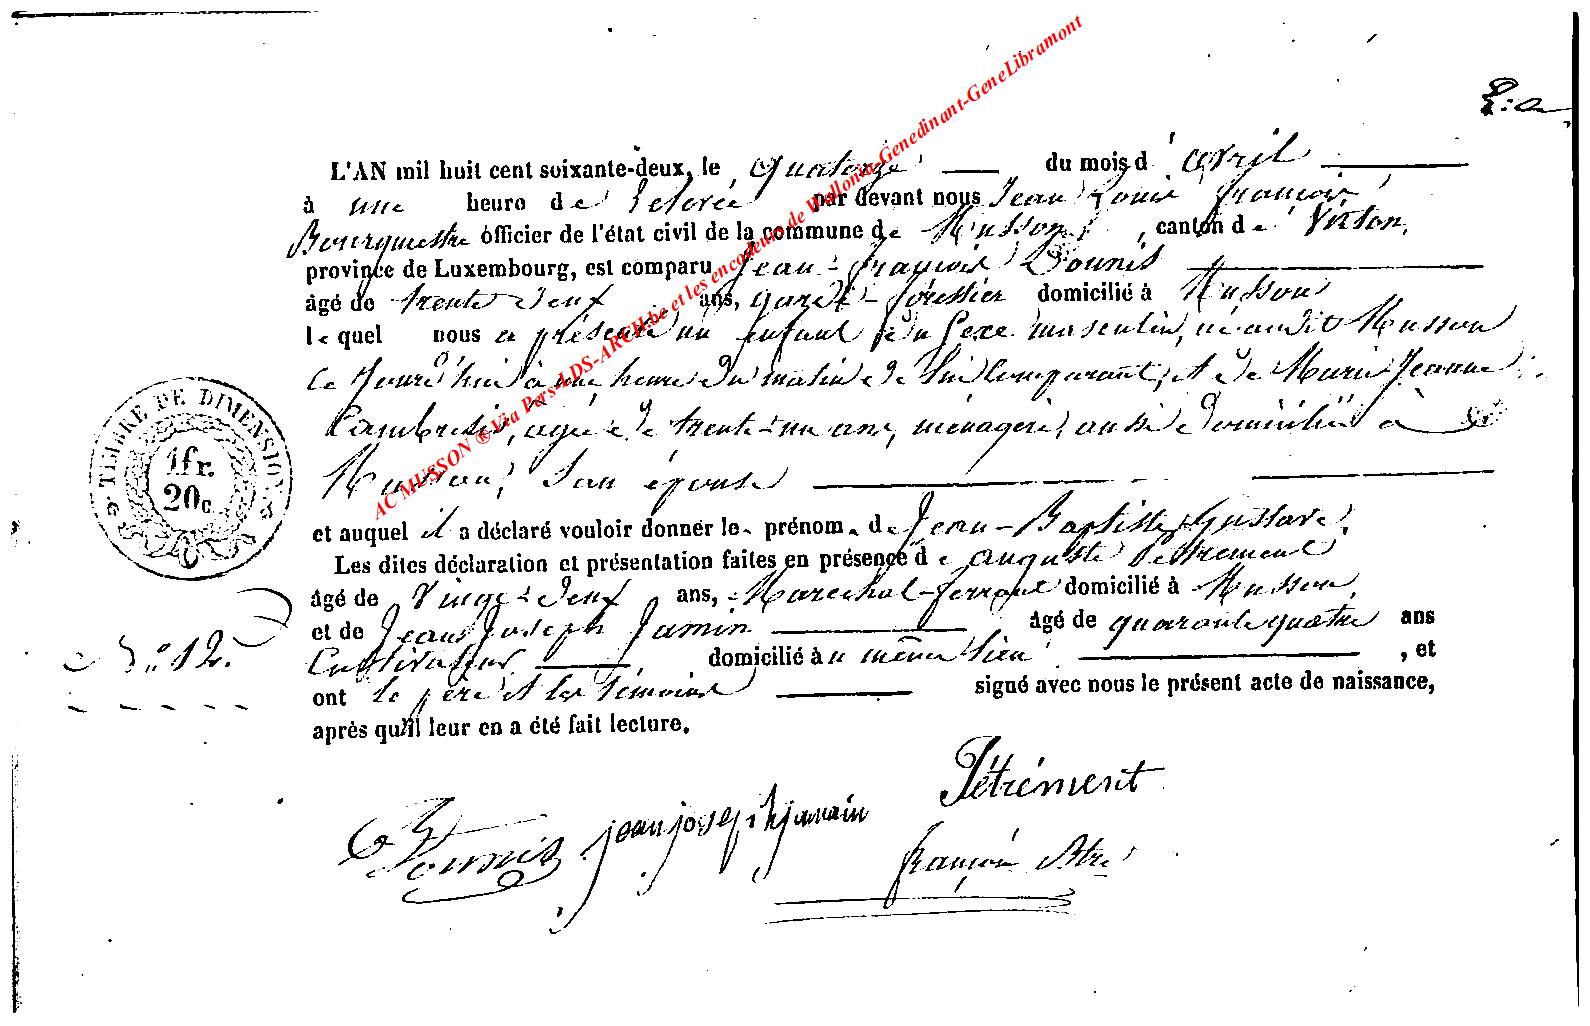 L'AN mil huit cent soixante-deux, le quatorze du mois d'avril
à une heure de relevée par devant nous Jean Louis François
Bourguestre officier de l'état civil de la commune de Musson, canton de Virton,
province de Luxembourg, est comparu Jean-François Dounis
âgé de trente deux ans, garde-forestier domicilié à Musson
lequel nous a présenté un enfant du sexe masculin, né audit Musson
ce jourd'hui à une heure du matin de lui comparant, et de Marie Jeanne
Cambresis, agée de trente-un ans, ménagère, aussi domiciliée à
Musson, son épouse
et auquel il a déclaré vouloir donner le prénom de Jean-Baptiste Gustave.
Les dites déclaration et présentation faites en présence de auguste Pétrement
âgé de Vingt-deux ans, Maréchal-ferrant domicilié à Musson,
et de Jean Joseph Jamin âgé de quarante quatre ans
Cultivateur, domicilié au même lieu, et
ont le père et les témoins signé avec nous le présent acte de naissance,
après qu'il leur en a été fait lecture.
TIMBRE DE DIMENSION
1fr.
20c
No 12.
Pétrément
Dounis jean joseph jamain
françois
AC MUSSON ® Via Pers-ADS-ARCH.be et les encodeurs de Wallonia-Genedinant-GeneLibramont